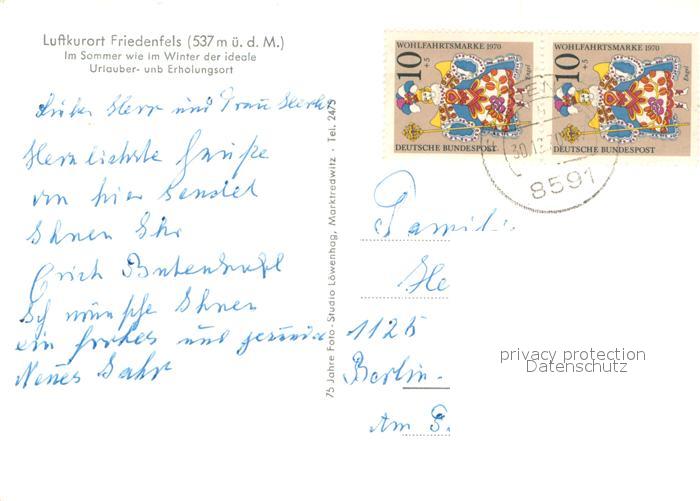 Luftkurort Friedenfels (537 m ü. d. M.)
Im Sommer wie im Winter der ideale
Urlauber- unb Erholungsort
Herr und Frau
Herzlichste Grüße
von hier sendet
Ihnen Ihr
Erich
Ich wünsche Ihnen
ein frohes und gesundes
Neues Jahr
75 Jahre Foto-Studio Löwenhag, Marktredwitz · Tel. 2475
WOHLFAHRTSMARKE 1970
10+5
Engel
DEUTSCHE BUNDESPOST
WOHLFAHRTSMARKE 1970
10+5
Engel
DEUTSCHE BUNDESPOST
8591
Famili
He
1125
Berlin-
Am
privacy protection
Datenschutz